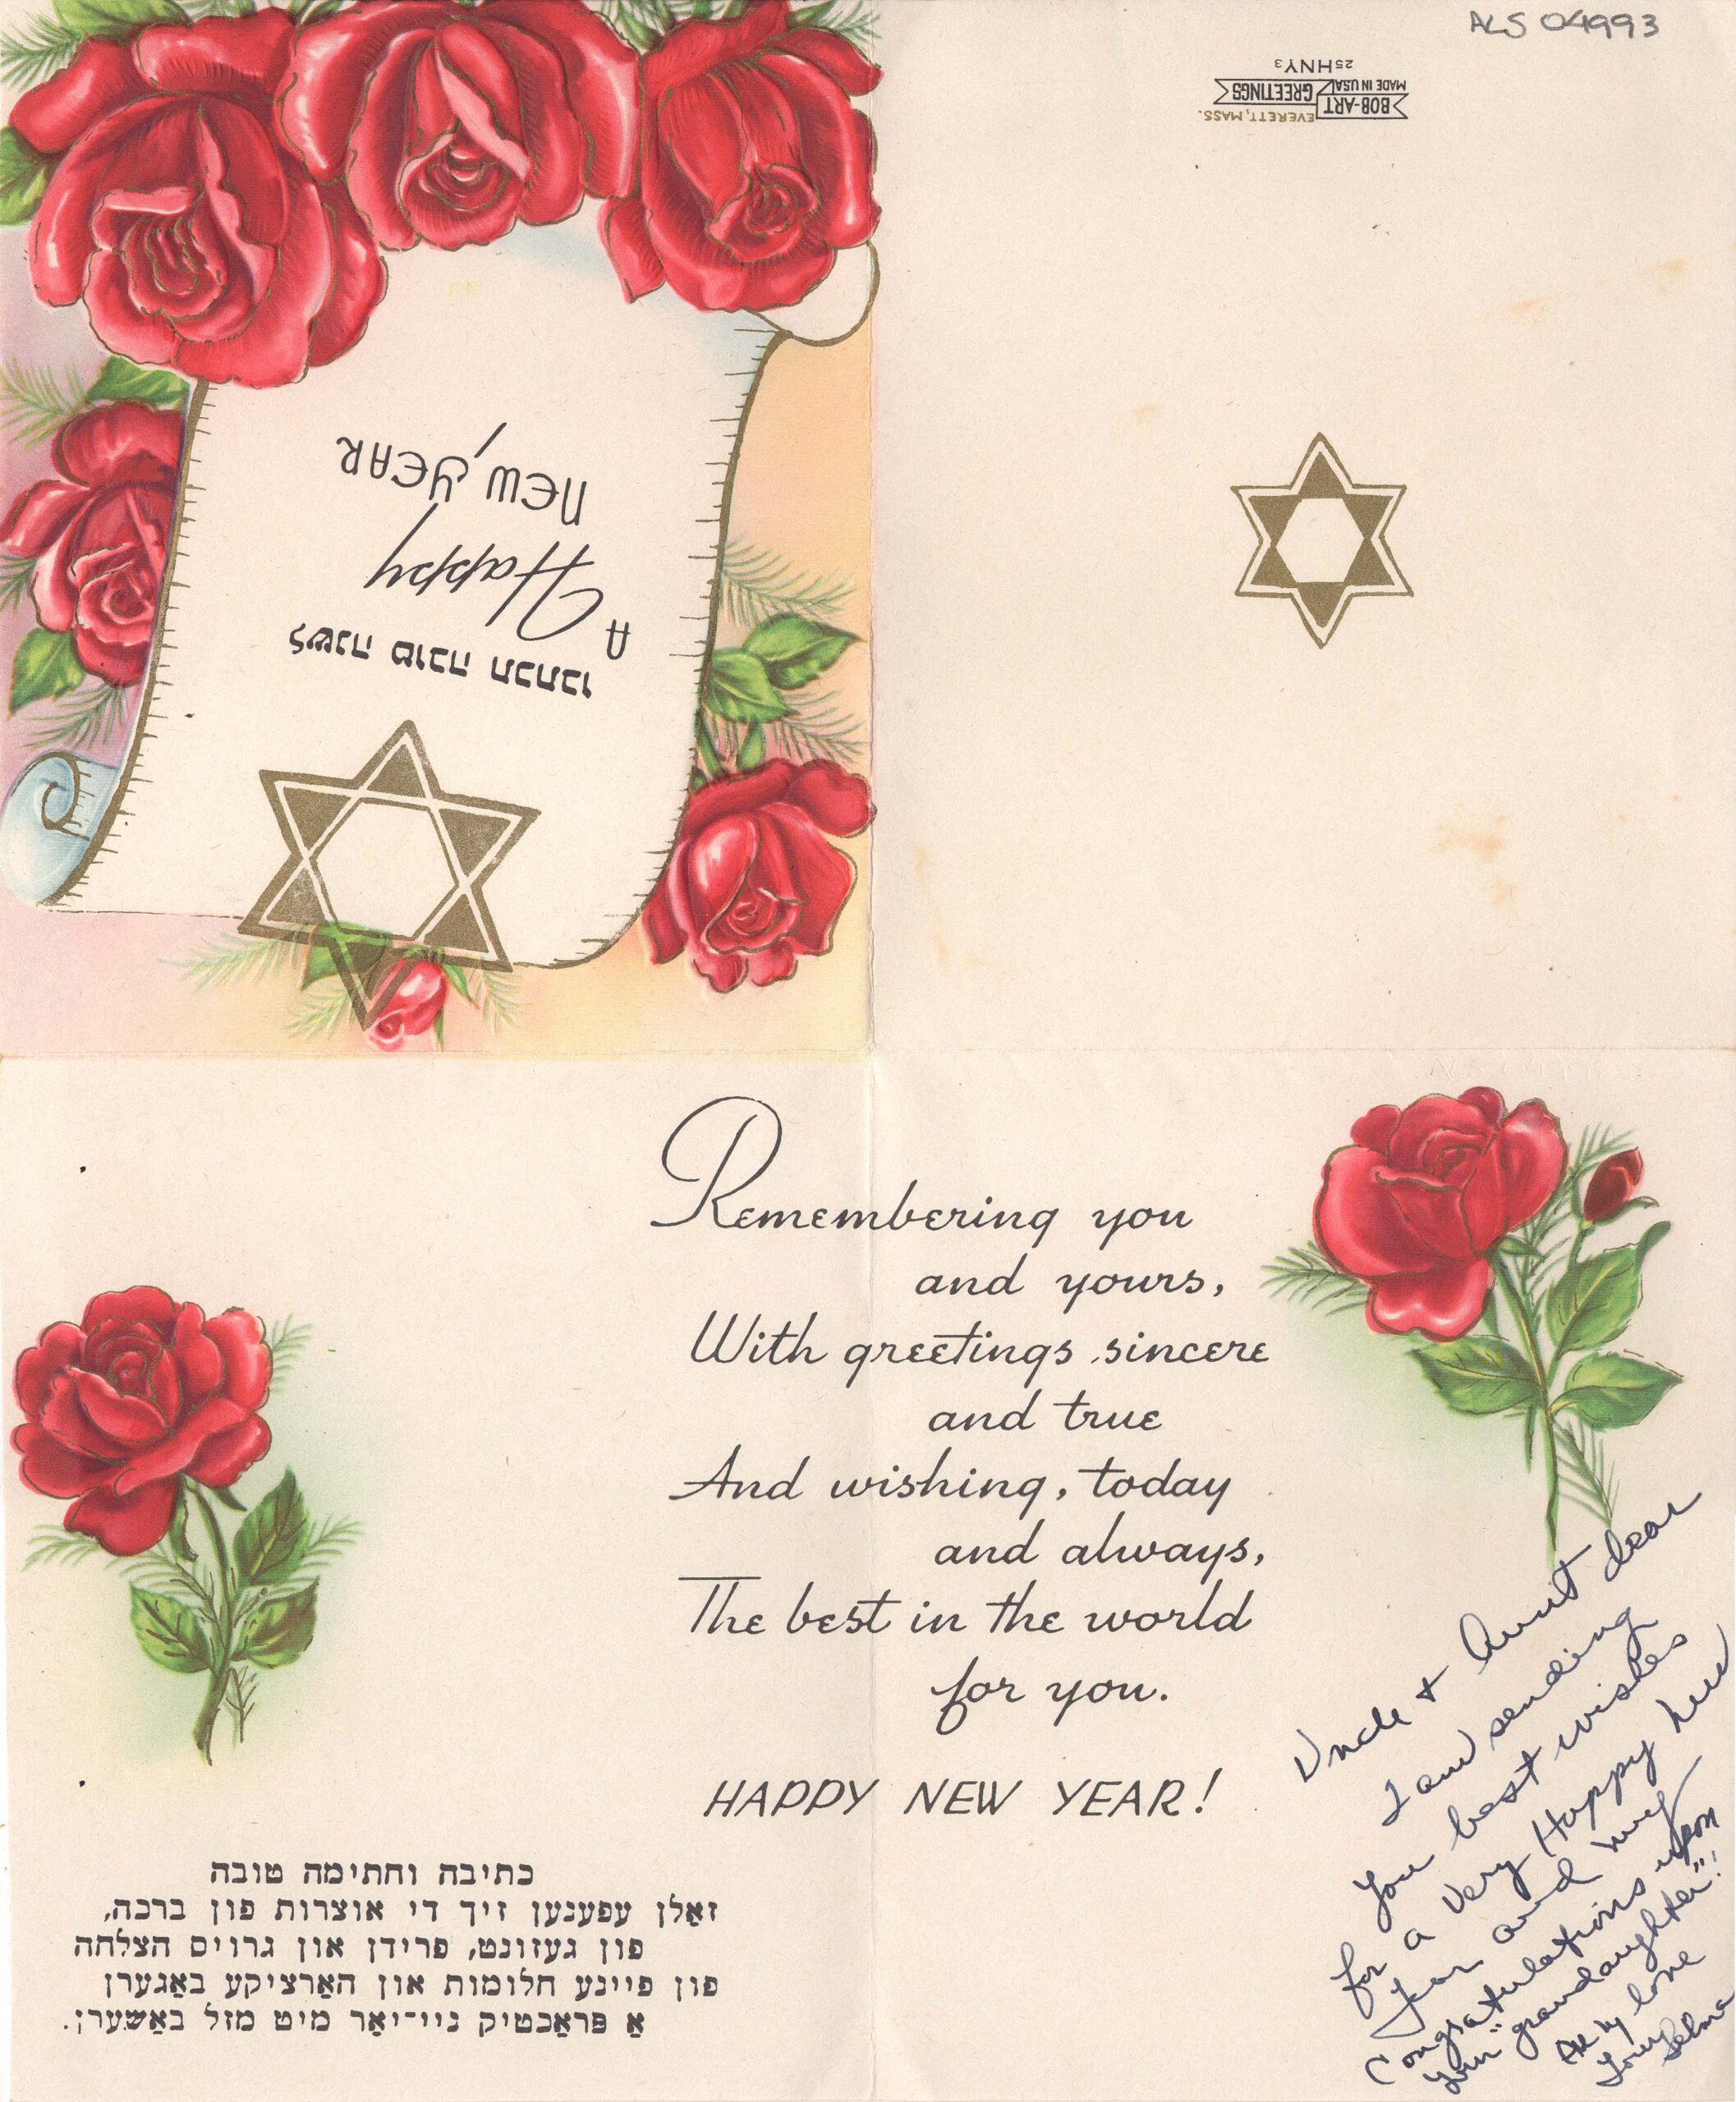 ALS 04993
BOB-ART GREETINGS
EVERETT, MASS.
MADE IN USA
25HNY3
לשנה טובה תכתבו
A Happy
NEW YEAR
Remembering you
and yours,
With greetings sincere
and true
And wishing, today
and always,
The best in the world
for you.
HAPPY NEW YEAR!
כתיבה וחתימה טובה
זאָלן עפענען זיך די אוצרות פון ברכה,
פון געזונט, פרידן און גרויס הצלחה
פון פיינע חלומות און האַרציקע באַגערן
אַ פּראַכטיק ניי־יאָר מיט מזל באַשערן.
Uncle & Aunt dear
I am sending
you best wishes
for a very Happy New
Year and my
congratulations upon
your "granddaughter"!
All my love
Your Selma